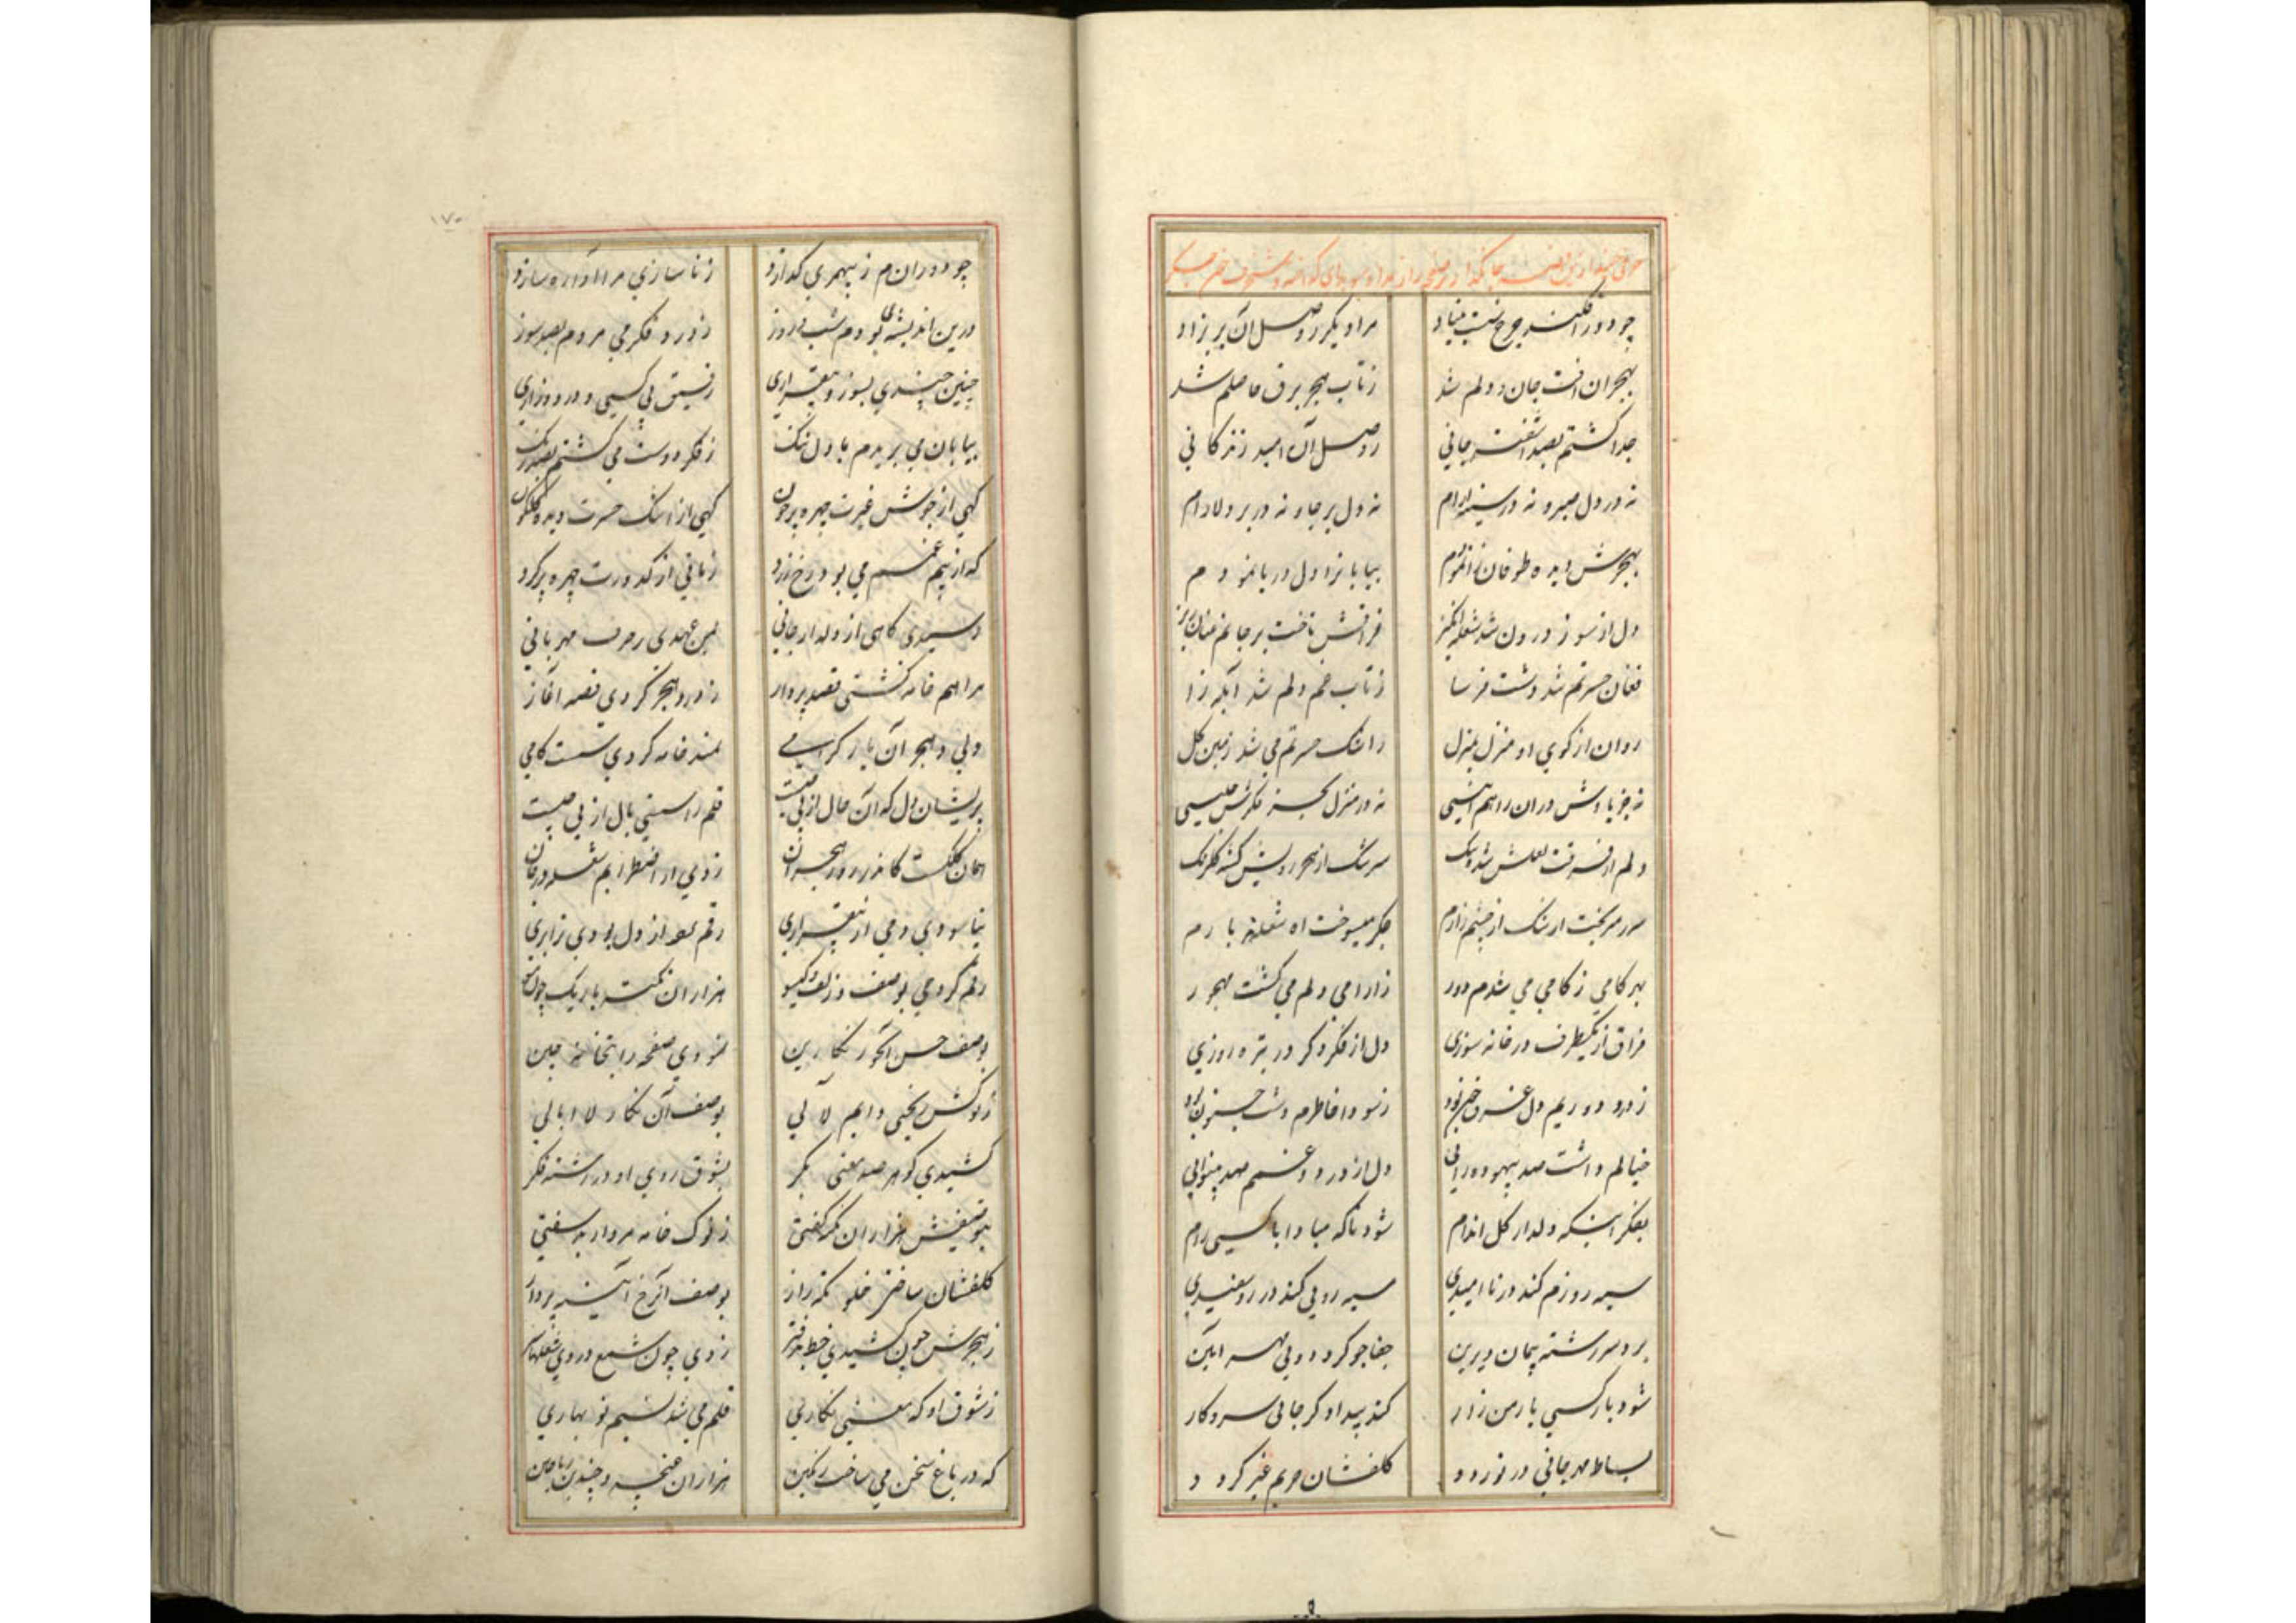 چو دور افکند چرخ بنیاد
مرا دیگر ز وصل آن پریزاد
بهجران آفت جان و دلم شد
ز تاب هجر برق حاصلم شد
جدا گشتم بصد آشفته جانی
ز وصل آن امید زندگانی
نه در دل صبر و نه در سینه آرام
نه دل بر جا و نه در بر دلارام
بهجرش دیده طوفان زا نمودم
بیابانرا ز دل دریا نمودم
دل از سوز درون شد شعله انگیز
فراقش تاخت بر جانم
فغان حسرتم شد دشت فرسا
ز تاب غم دلم شد آبله زا
روان از کوی او منزل بمنزل
ز اشک حسرتم می شد زمین گل
نه جز یادش در آن راهم انیسی
نه در منزل بجز فکرش جلیسی
دلم از فرقت لعلش شده تنگ
سرشک از هجر رویش گشته گلرنگ
اشک از چشم زارم
جگر میسوخت آه شعله بارم
بهر گامی ز گامی می شدم دور
ز آرامی دلم می گشت مهجور
فراق از یکطرف در خانه سوزی
دل از فکر دگر در تیره روزی
ز درد دوریم دل غرق خون بود
ز سودا خاطرم دشت جنون بود
خیالم داشت صد بیهوده رایی
دل از درد و غم صد بینوایی
بفکر اینکه دلدار گل اندام
شود ناگه مبادا با کسی رام
سیه روزم کند در ناامیدی
سیه رویی کند در رو سفیدی
برد سررشته پیمان دیرین
جفاجو گردد و بی مهر آیین
شود با کسی یار من زار
کند بیداد گر جایی سر و کار
بساط مهر جانی در نوردد
گلفشان حریم غیر گردد
چو دورانم ز بیمهری گدازد
ز ناسازی مرا آواره سازد
درین اندیشه بودم شب و روز
ز درد و فکر می مردم بصد سوز
چنین چندی بسوز و بیقراری
رفیق بی کسی و درد و زاری
بیابان می بریدم با دل تنگ
ز فکر دوست می گشتم بصد رنگ
گهی از جوش غیرت چهره پرخون
گهی از اشک حسرت دیده گلگون
که از بیم غمم می بود رخ زرد
زمانی از کدورت چهره پرگرد
رسیدی گاهی از دلدار جانی
بمن عهدی ز حرف مهربانی
مرا هم خامه گشتی قصه پرداز
ز درد هجر کردی قصه آغاز
ولی در هجر آن یار گرامی
سمند خامه کردی سست گامی
پریشان دل که آن حال از پی چیست
قلم را سستی بال از پی چیست
همان کلکست کاندر روز هجران
زدی از اضطرابم شعله در جان
نیاسودی دمی از بیقراری
رقم کردمی بوصف زلف و گیسو
هزاران نکته باریک چون مو
بوصف حسن آن حور نگارین
نمودی صفحه را بتخانه چین
ز نوکش ریختی دایم لآلی
بوصف آن نگار لاابالی
کشیدی گوهر صد معنی بکر
بشوق روی او در رشته فکر
بتوصیفش هزاران نکته گفتی
ز نوک خامه مروارید سفتی
گلفشان ساختی خلوتگه راز
بوصف آن رخ آیینه پرداز
ز هجرش چون کشیدی خط بدفتر
زدی چون شمع در وی شعله ها سر
ز شوق او که معنی نگاری
قلم می شد نسیم نوبهاری
که در باغ سخن می ساخت رنگین
هزاران غنچه و چندین ریاحین
۱۷۰